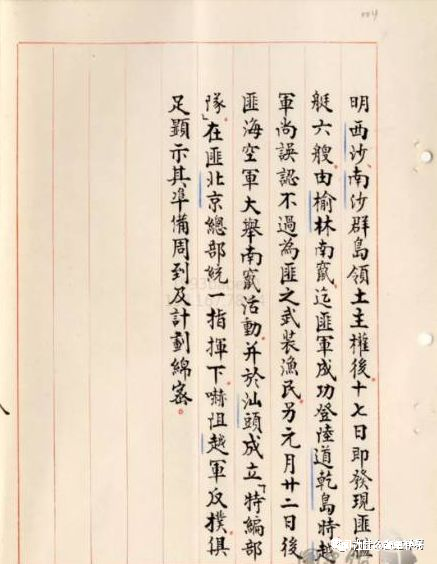 004
明西沙、南沙群島領土主權後。十七日即發現匪
艇六艘。由榆林南竄。迄匪軍成功登陸道乾島時。越
軍尚誤認不過為匪之武裝漁民。另元月廿二日後
匪海空軍大舉南竄活動。并於汕頭成立「特編部
隊」在匪北京總部統一指揮下。嚇阻越軍反撲。俱
足顯示其準備周到及計劃綿密。